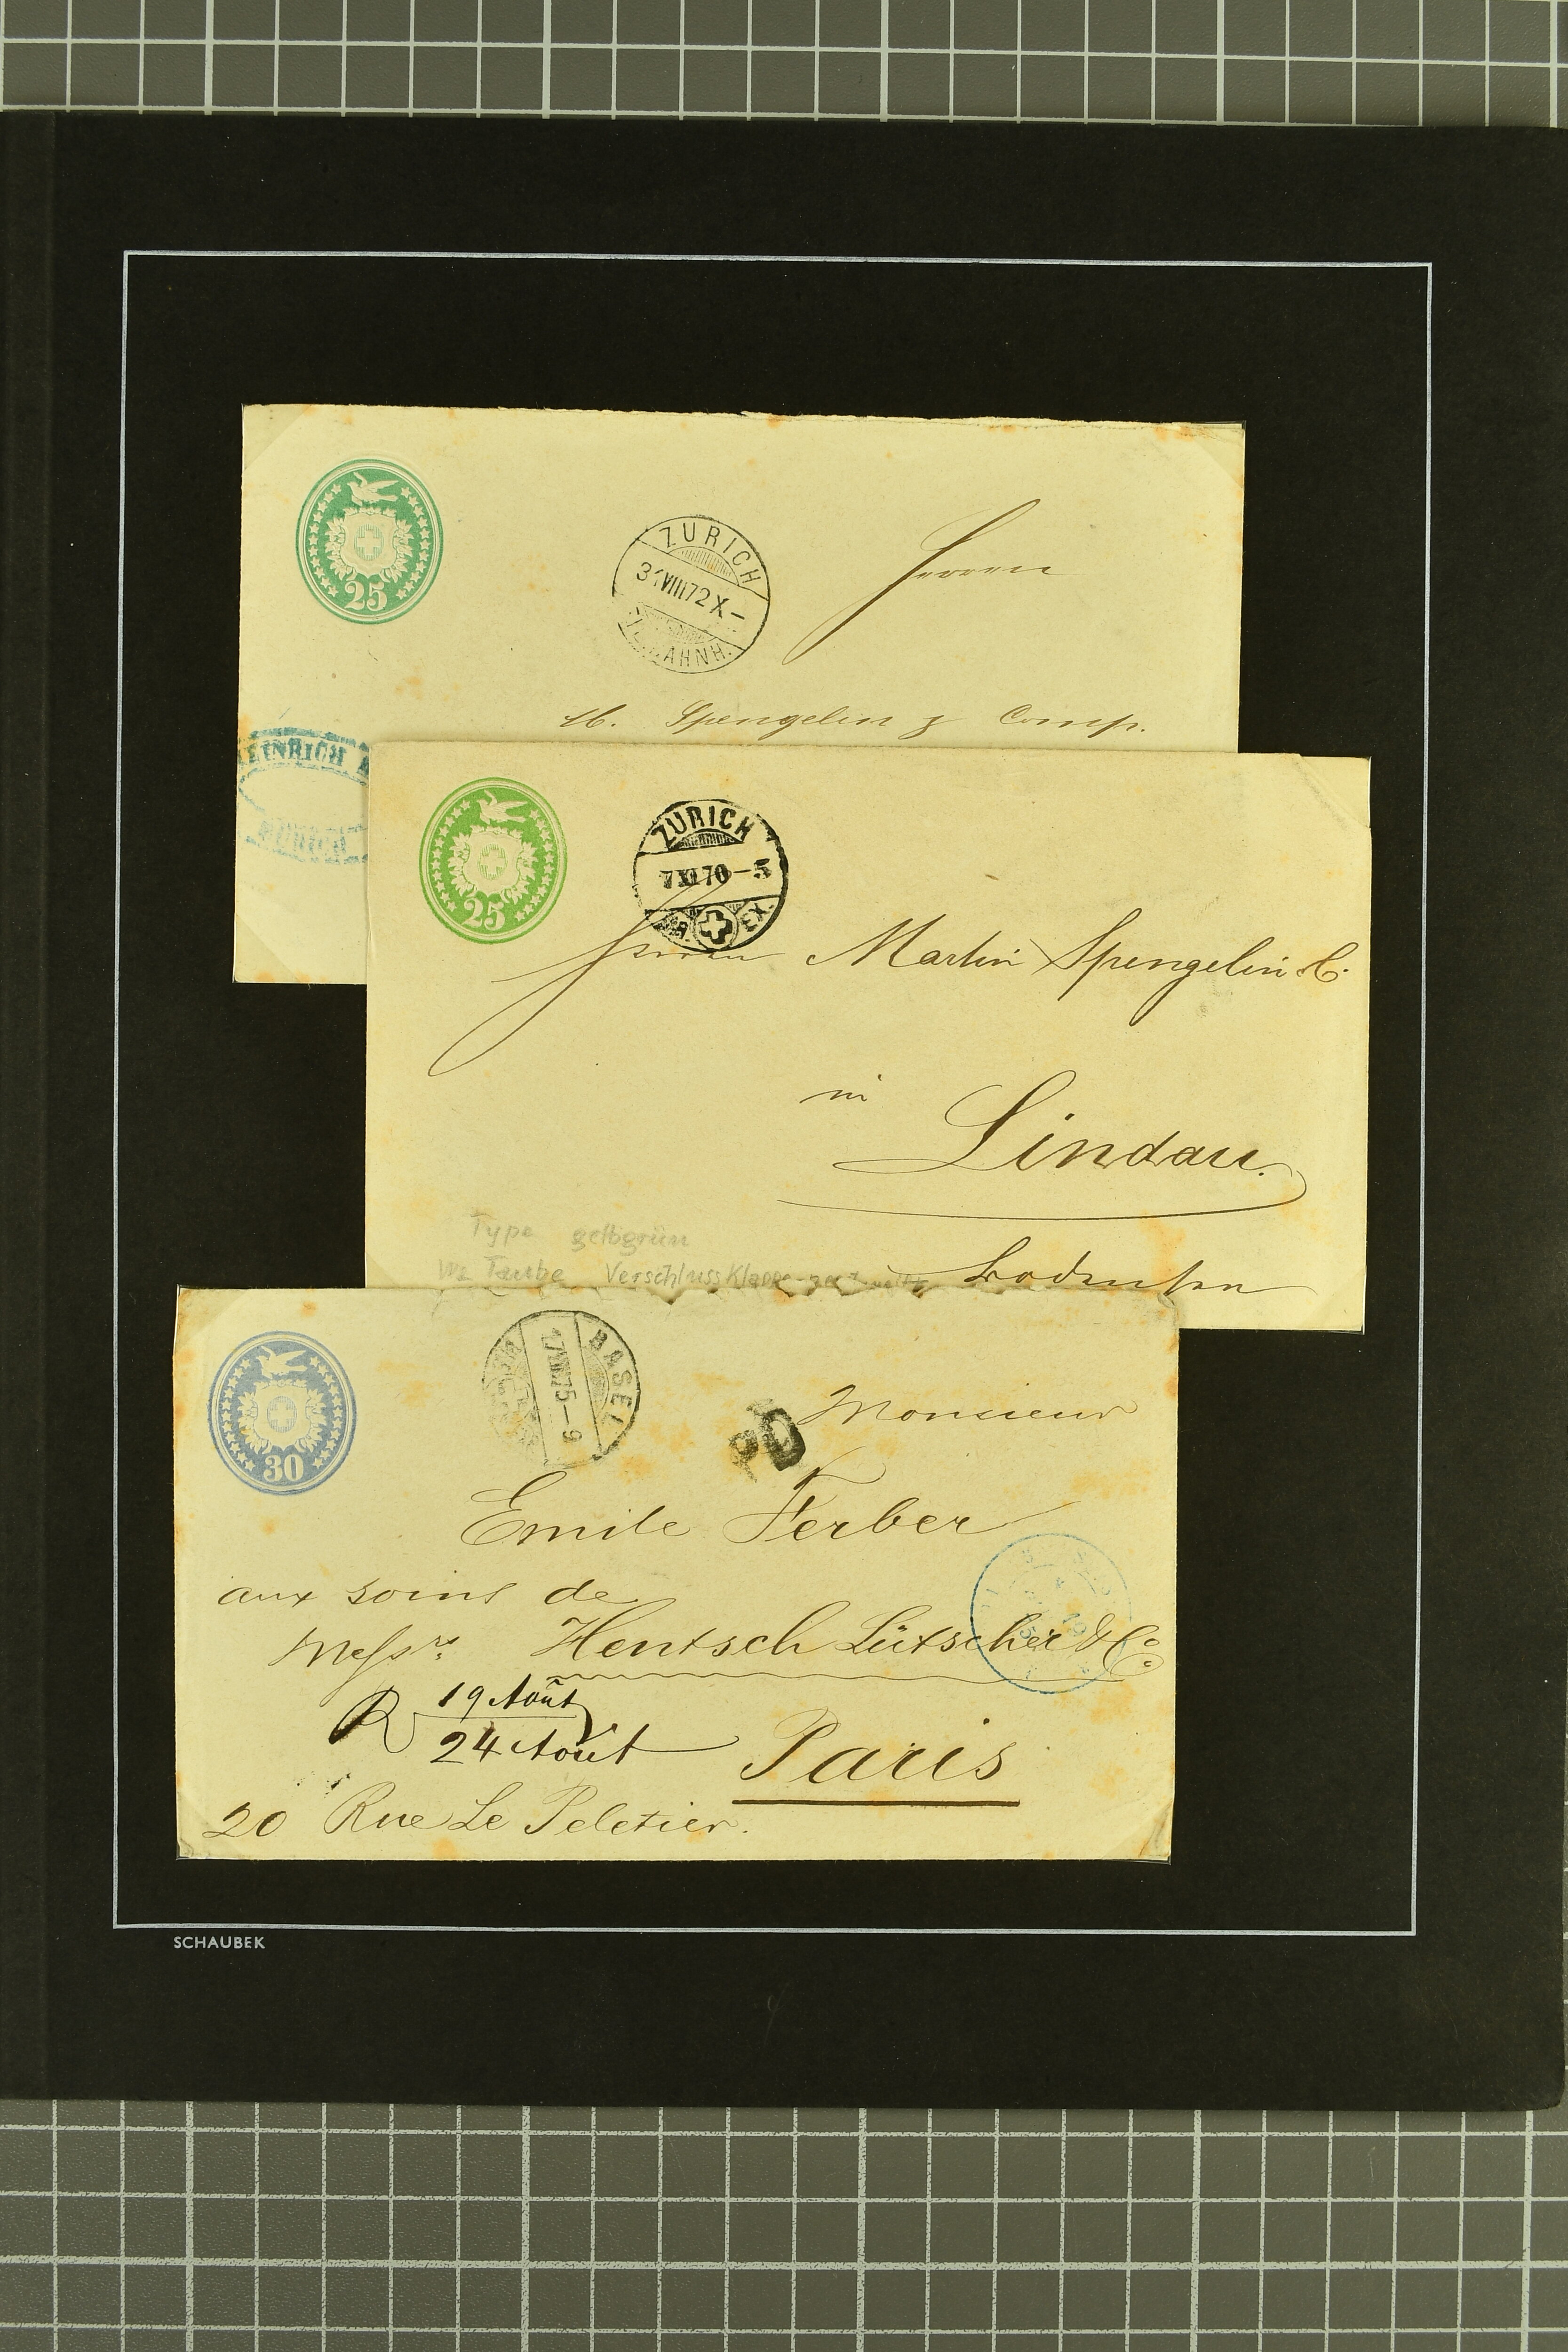 25
ZÜRICH
31 VIII 72 X –
Herren
M. Spengelin & Comp.
25
ZÜRICH
7 XI 70 – 5
Herren Martin Spengelin & C.
in
Lindau.
Bodensee
Type gelbgrün
Wz Taube Verschlussklappe
30
BASEL
17 VIII 75 – 6
PD
Monsieur
Emile Ferber
aux soins de
Messrs. Hentsch Lütscher & Co.
R 19 Août
24 Août
Paris
20 Rue Le Peletier.
SCHAUBEK